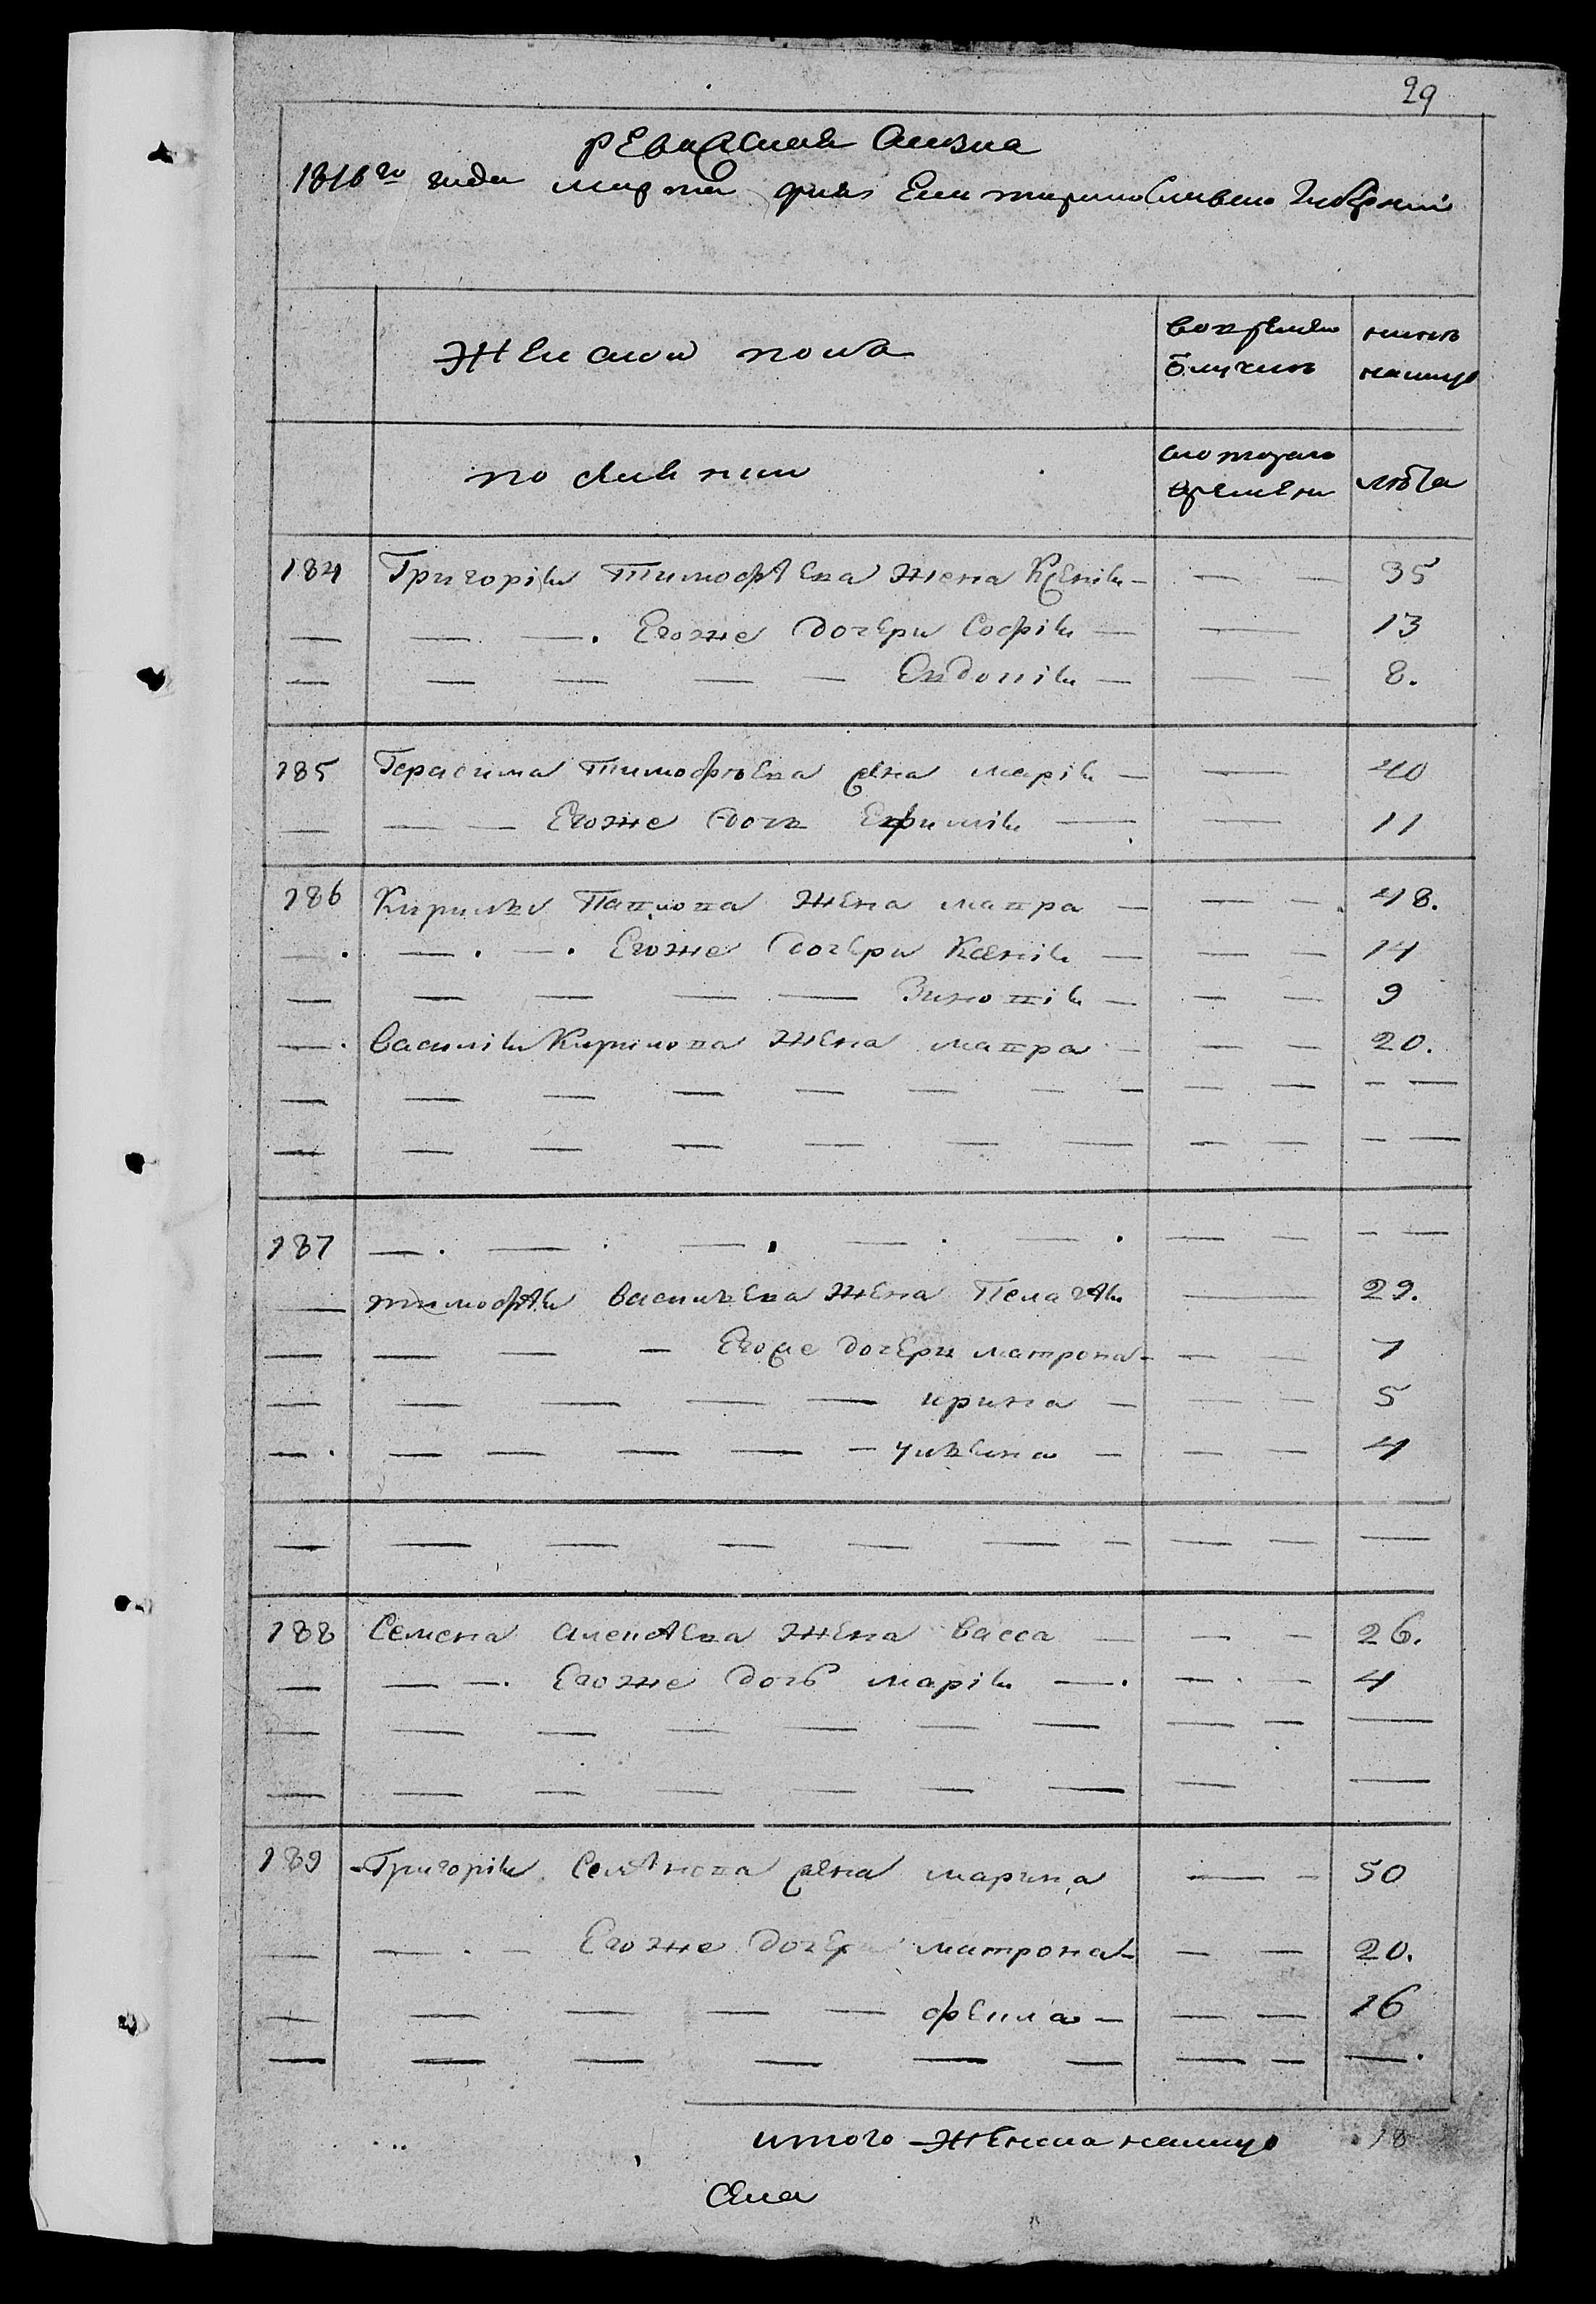 29
Ревизская сказка
1816 го года марта дня Екатеринославской Губернии
Женской пол
во временной отлучке
ныне налицо
по селениям
с которого времени
лета
184 Григорія Тимофѣева жена Ксенія — — — 35
— — —. Егоже дочери Софія — — 13
— — — — — Евдокія — — — 8.
185 Герасима Тимофѣева жена марія — — 40
— — — Егоже дочь Ефимія — — 11
186 Кирилы Павлова жена мавра — — — 48.
—. —. —. Егоже дочери Ксенія — — — 14
— — — — — Зиновія — — — 9
—. василія Кирилова жена мавра — — — 20.
— — — — — — — — — — — —
— — — — — — — — — — —
187 —. — . — . — . — . — — — —
— тимофѣя василъева жена Пелагѣя — 29.
— — — — Егоже дочери матрона — — — 7
— — — — — ирина — — — 5
—. — — — — — улъяна — — — 4
— — — — — — — — — —
188 Семена алексѣева жена васса — — — 26.
— — —. Егоже дочь марія —. — . — 4
— — — — — — — — — —
— — — — — — — — —
189 Григорія Семѣнова жена марина — — 50
— — . — Егоже дочери матрона — — — 20.
— — — — — фекла — — — 16
— — — — — — — — —.
итого женска налицо 18